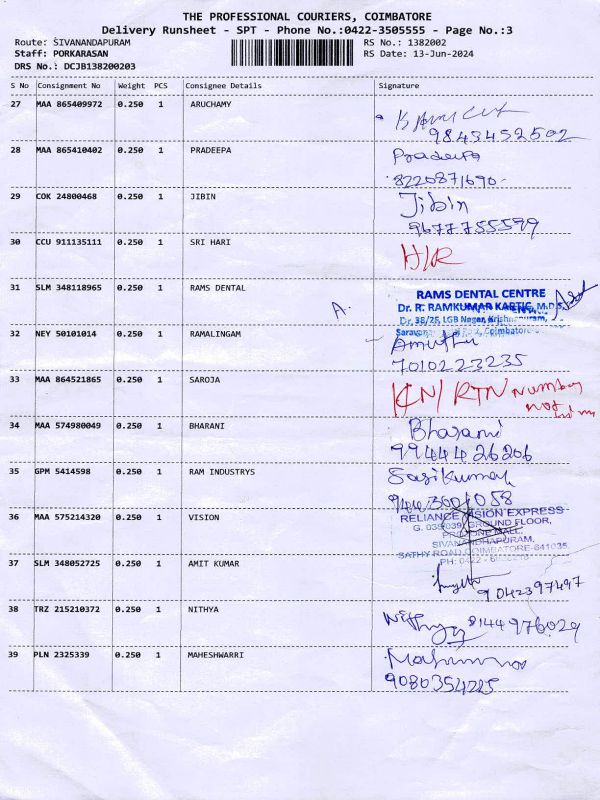 THE PROFESSIONAL COURIERS, COIMBATORE
Delivery Runsheet - SPT - Phone No.:0422-3505555 - Page No.:3
Route: SIVANANDAPURAM RS No.: 1382002
Staff: PORKARASAN RS Date: 13-Jun-2024
DRS No.: DCJB138200203
S No Consignment No Weight PCS Consignee Details Signature
27 MAA 865409972 0.250 1 ARUCHAMY
9843452502
28 MAA 865410402 0.250 1 PRADEEPA Pradeepa
8220871690
29 COK 24800468 0.250 1 JIBIN Jibin
9677755599
30 CCU 911135111 0.250 1 SRI HARI H/R
31 SLM 348118965 0.250 1 RAMS DENTAL RAMS DENTAL CENTRE
Dr. R. RAMKUMAR KARTIC, M.D.S.,
A. Dr. 38/25, LGB Nagar, Krishnapuram,
Coimbatore
32 NEY 50101014 0.250 1 RAMALINGAM Amutha
7010223235
33 MAA 864521865 0.250 1 SAROJA KN/RTN Number
not
34 MAA 574980049 0.250 1 BHARANI Bharani
9944426206
35 GPM 5414598 0.250 1 RAM INDUSTRYS Sasikumar
RELIANCE VISION EXPRESS
36 MAA 575214320 0.250 1 VISION GROUND FLOOR,
MALL,
SIVANANDHAPURAM,
SATHY ROAD, COIMBATORE-641035.
PH: 0422 -
37 SLM 348052725 0.250 1 AMIT KUMAR
9042397497
38 TRZ 215210372 0.250 1 NITHYA Nithya 8144976029
39 PLN 2325339 0.250 1 MAHESHWARRI
9080354225